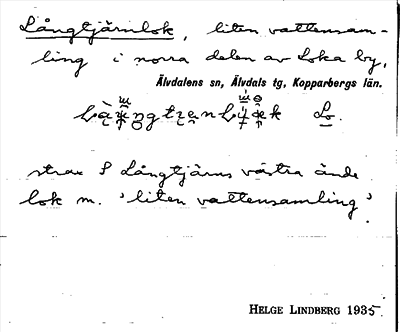 Långtjärnlok, liten vattensam-
ling i norra delen av Loka by,
Älvdalens sn, Älvdals tg, Kopparbergs län.
Lo.
strax S Långtjärns västra ände
lok m. 'liten vattensamling'.
HELGE LINDBERG 1935.